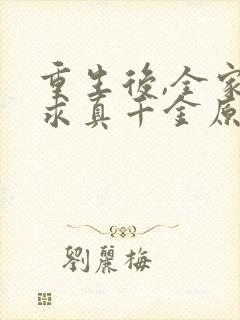 重生後,全家
求真千金原
劉麗梅